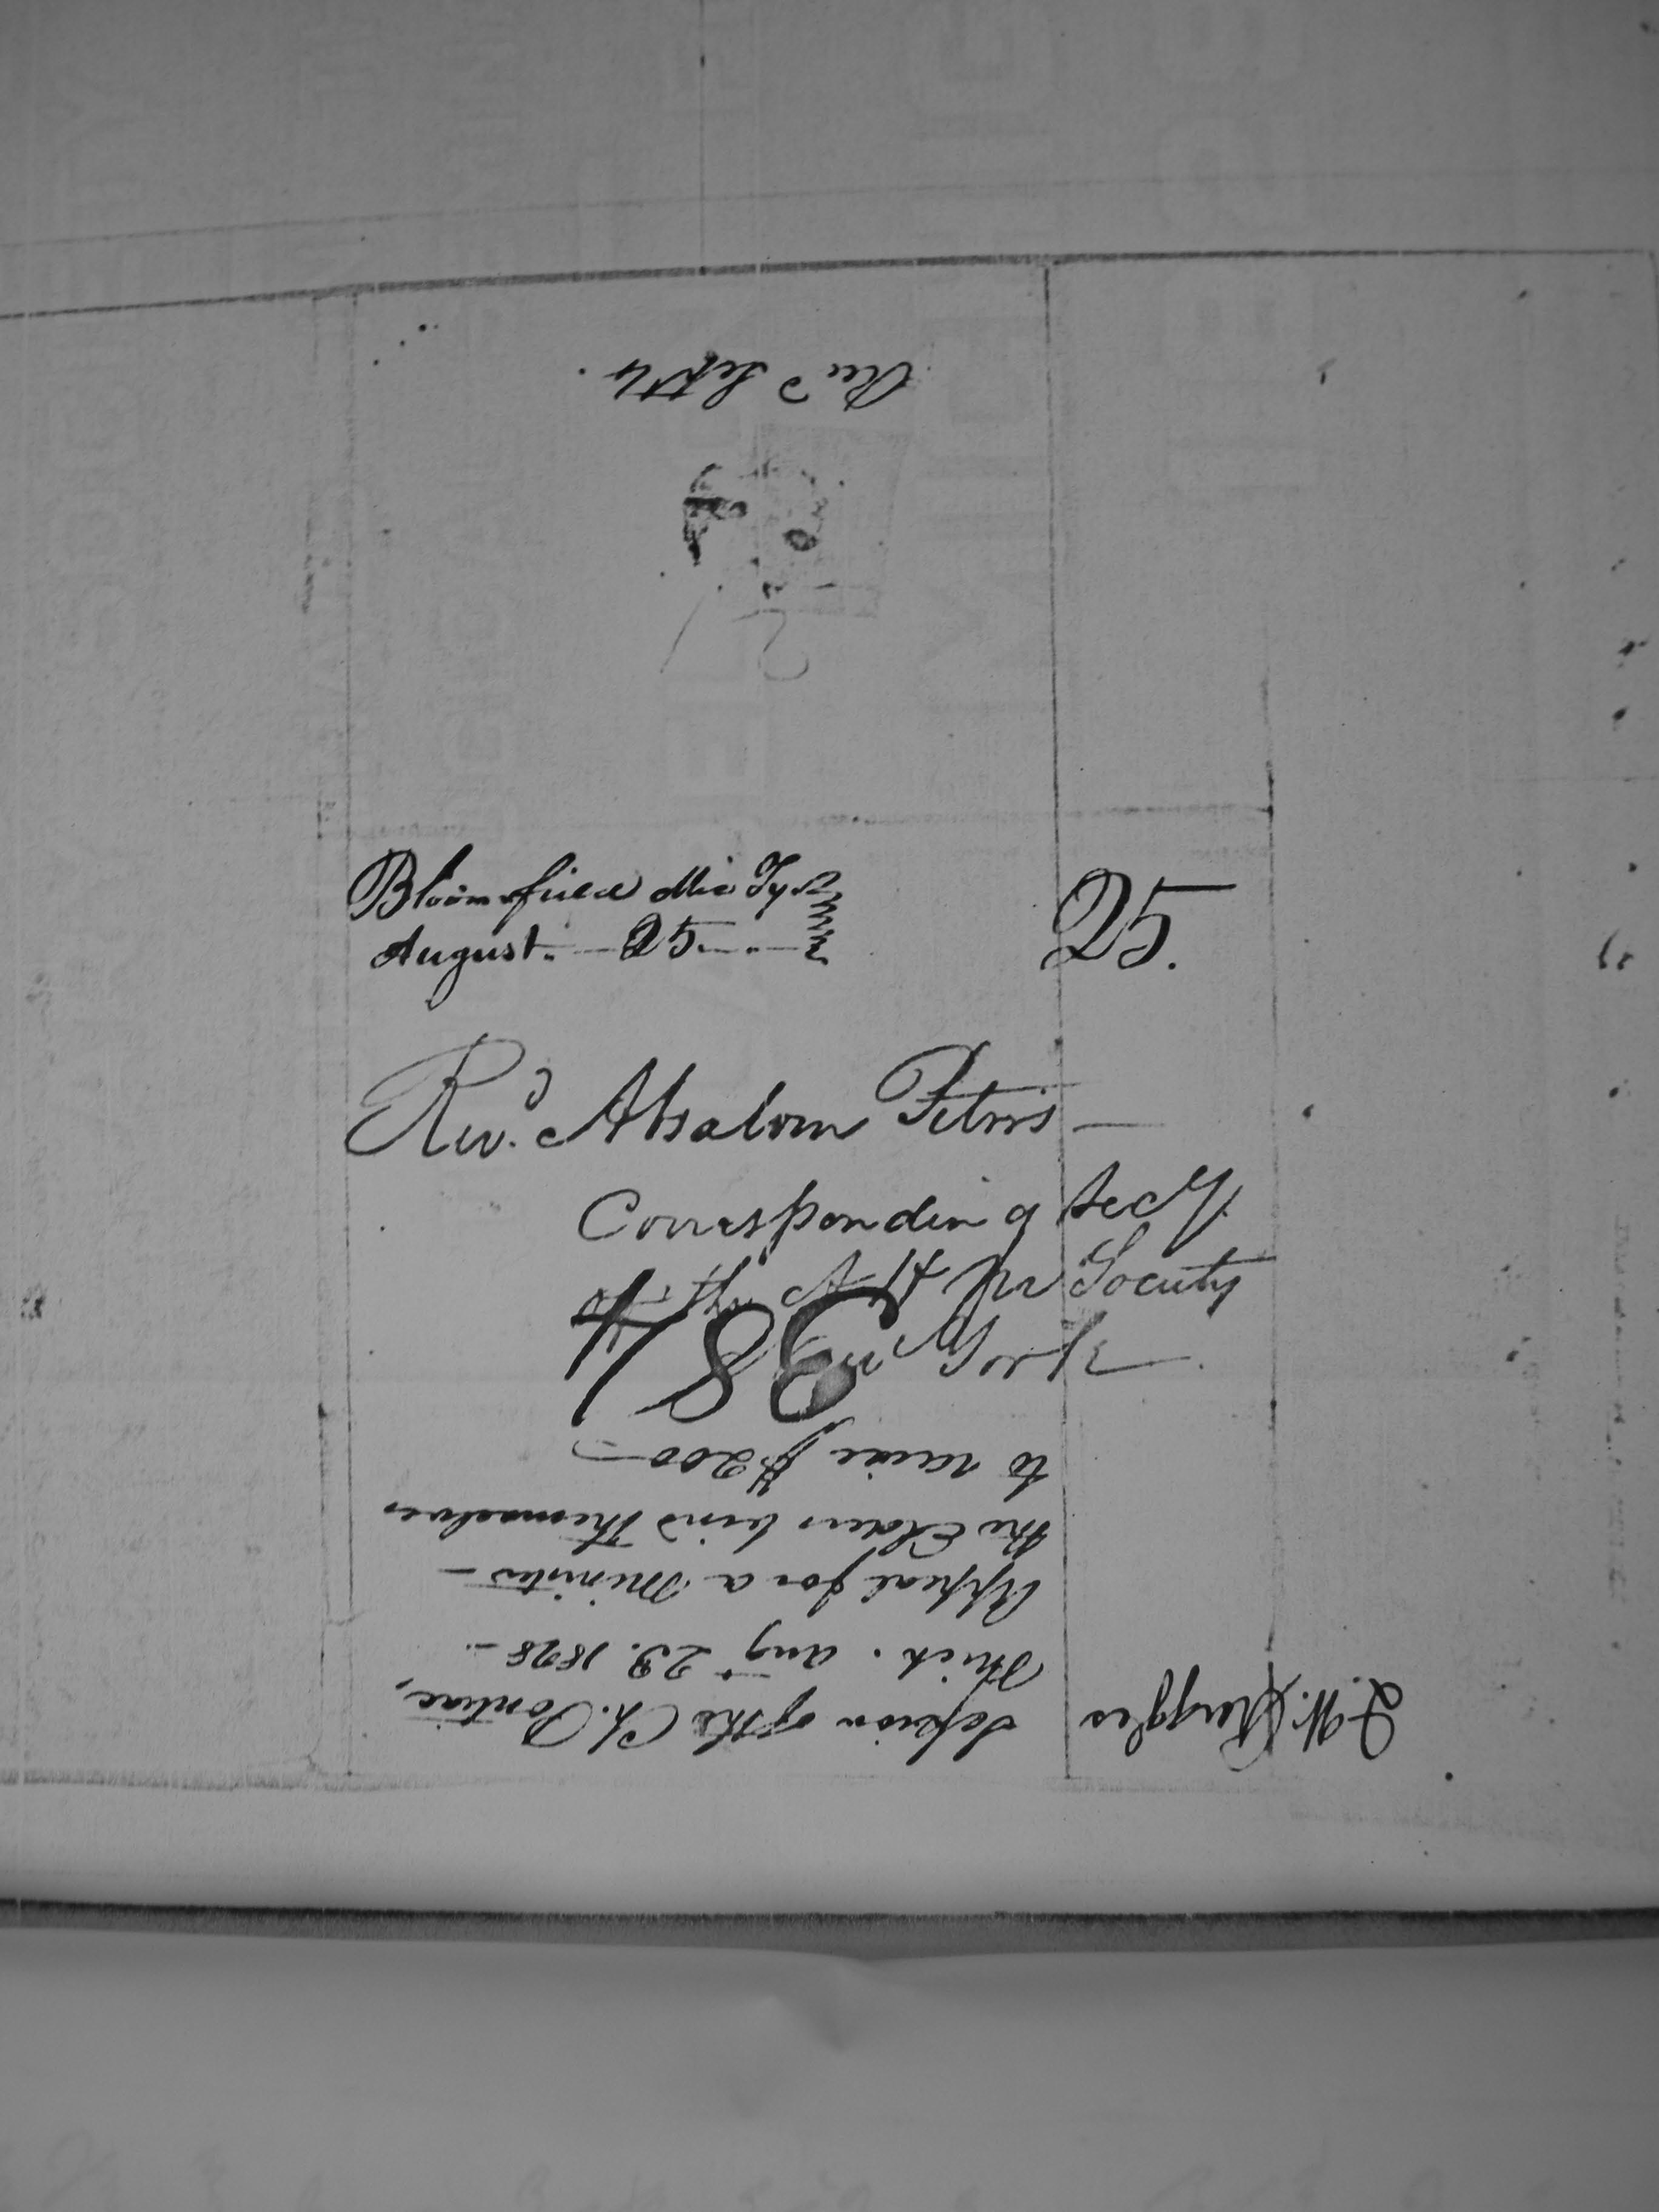 Rec'd Sept 4.
Bloomfield Mic Ty
August. - 25 -
25.
Revd. Absalom Peters -
Corresponding Secy.
of the A H M Society
New York
384
I. W. Ruggles
Session of the Ch. Pontiac,
Mich. Aug 23. 1828 -
Appeal for a Minister -
the Elders bind themselves
to raise $200 -